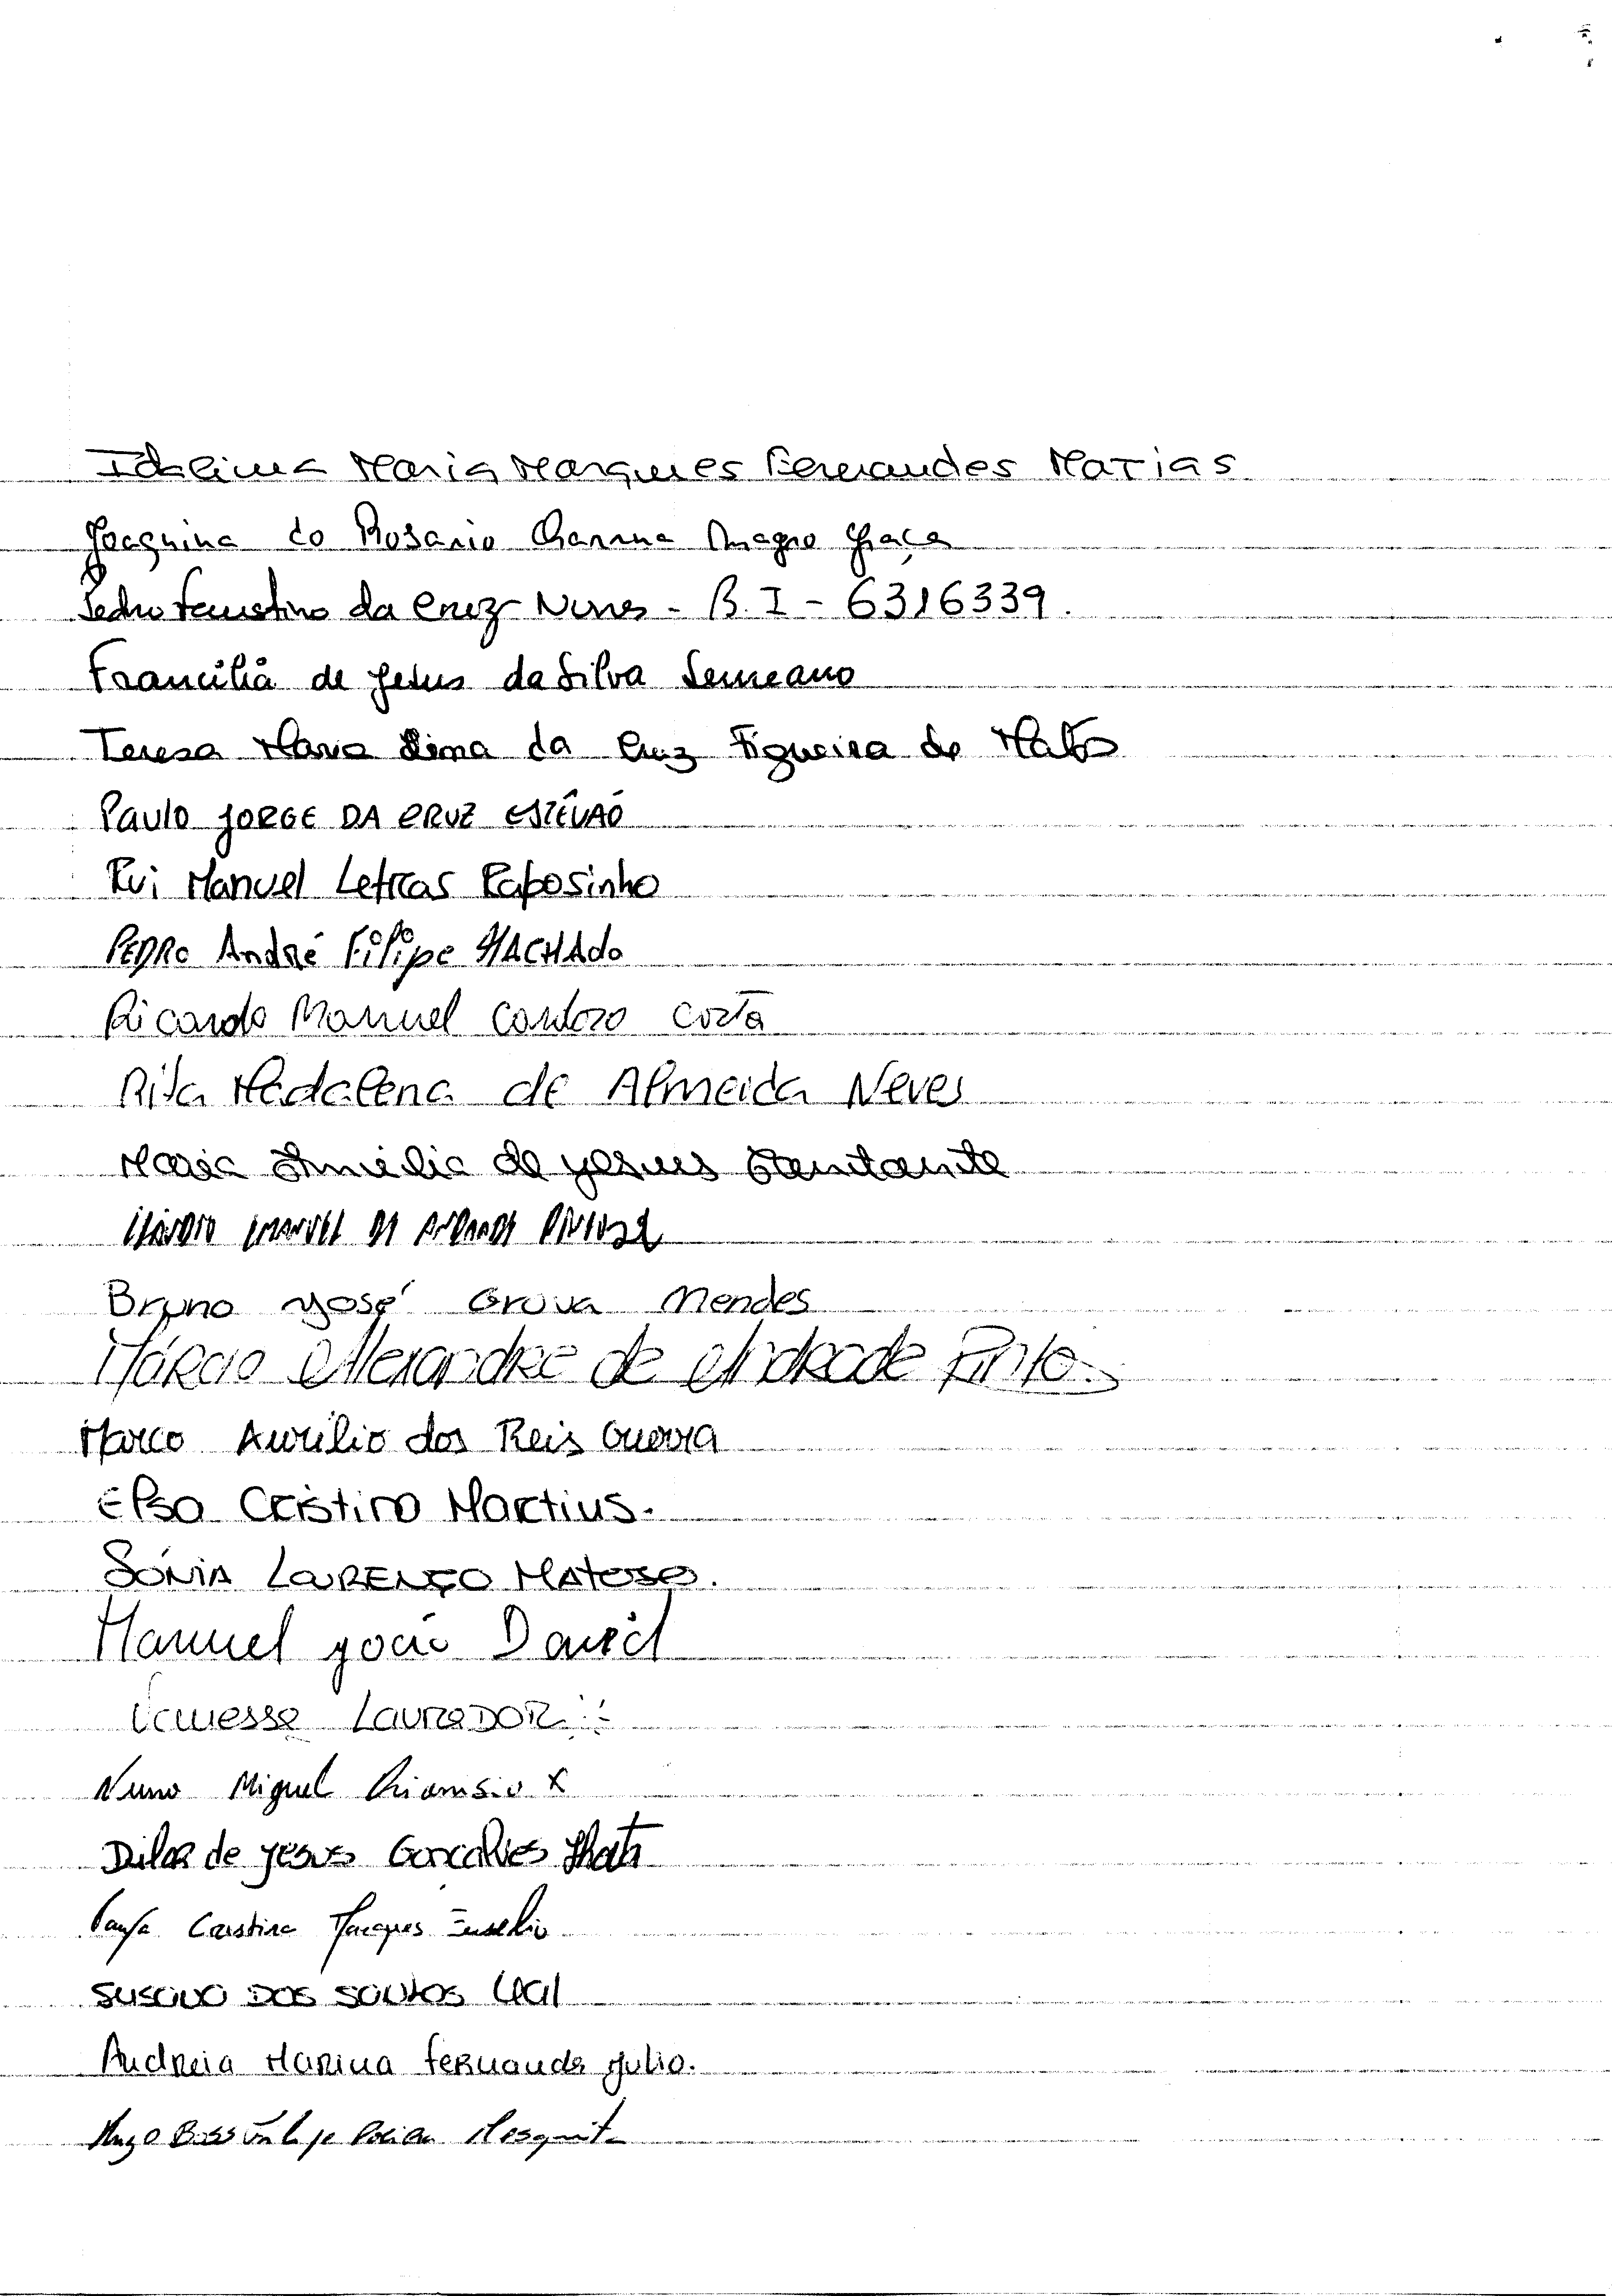 Idalina Maria Marques Fernandes Matias
Joaquina do Rosario Magro Graça
Pedro Faustino da Cruz Nunes - B.I - 6316339.
Francília de Jesus da Silva Semeano
Teresa Maria Lima da Cruz Figueira de Matos
Paulo JORGE DA CRUZ ESTÊVÃO
Rui Manuel Letras Raposinho
PEDRO André Filipe MACHADO
Ricardo Manuel Cardoso Costa
Rita Madalena de Almeida Neves
Maria Amélia de Jesus
Bruno José Grova Mendes
Márcio Alexandre de Andrade Pinto.
Marco Aurélio dos Reis Guerra
Elsa Cristina Martins.
SÓNIA LOURENÇO MATOSO.
Manuel João David
Vanessa LAVRADOR
Nuno Miguel
Dilar de Jesus Goncalves
Paula Cristina Marques Eusébio
SUSANA DOS SANTOS LEAL
Andreia Marina Fernanda Julio.
Hugo Mesquita